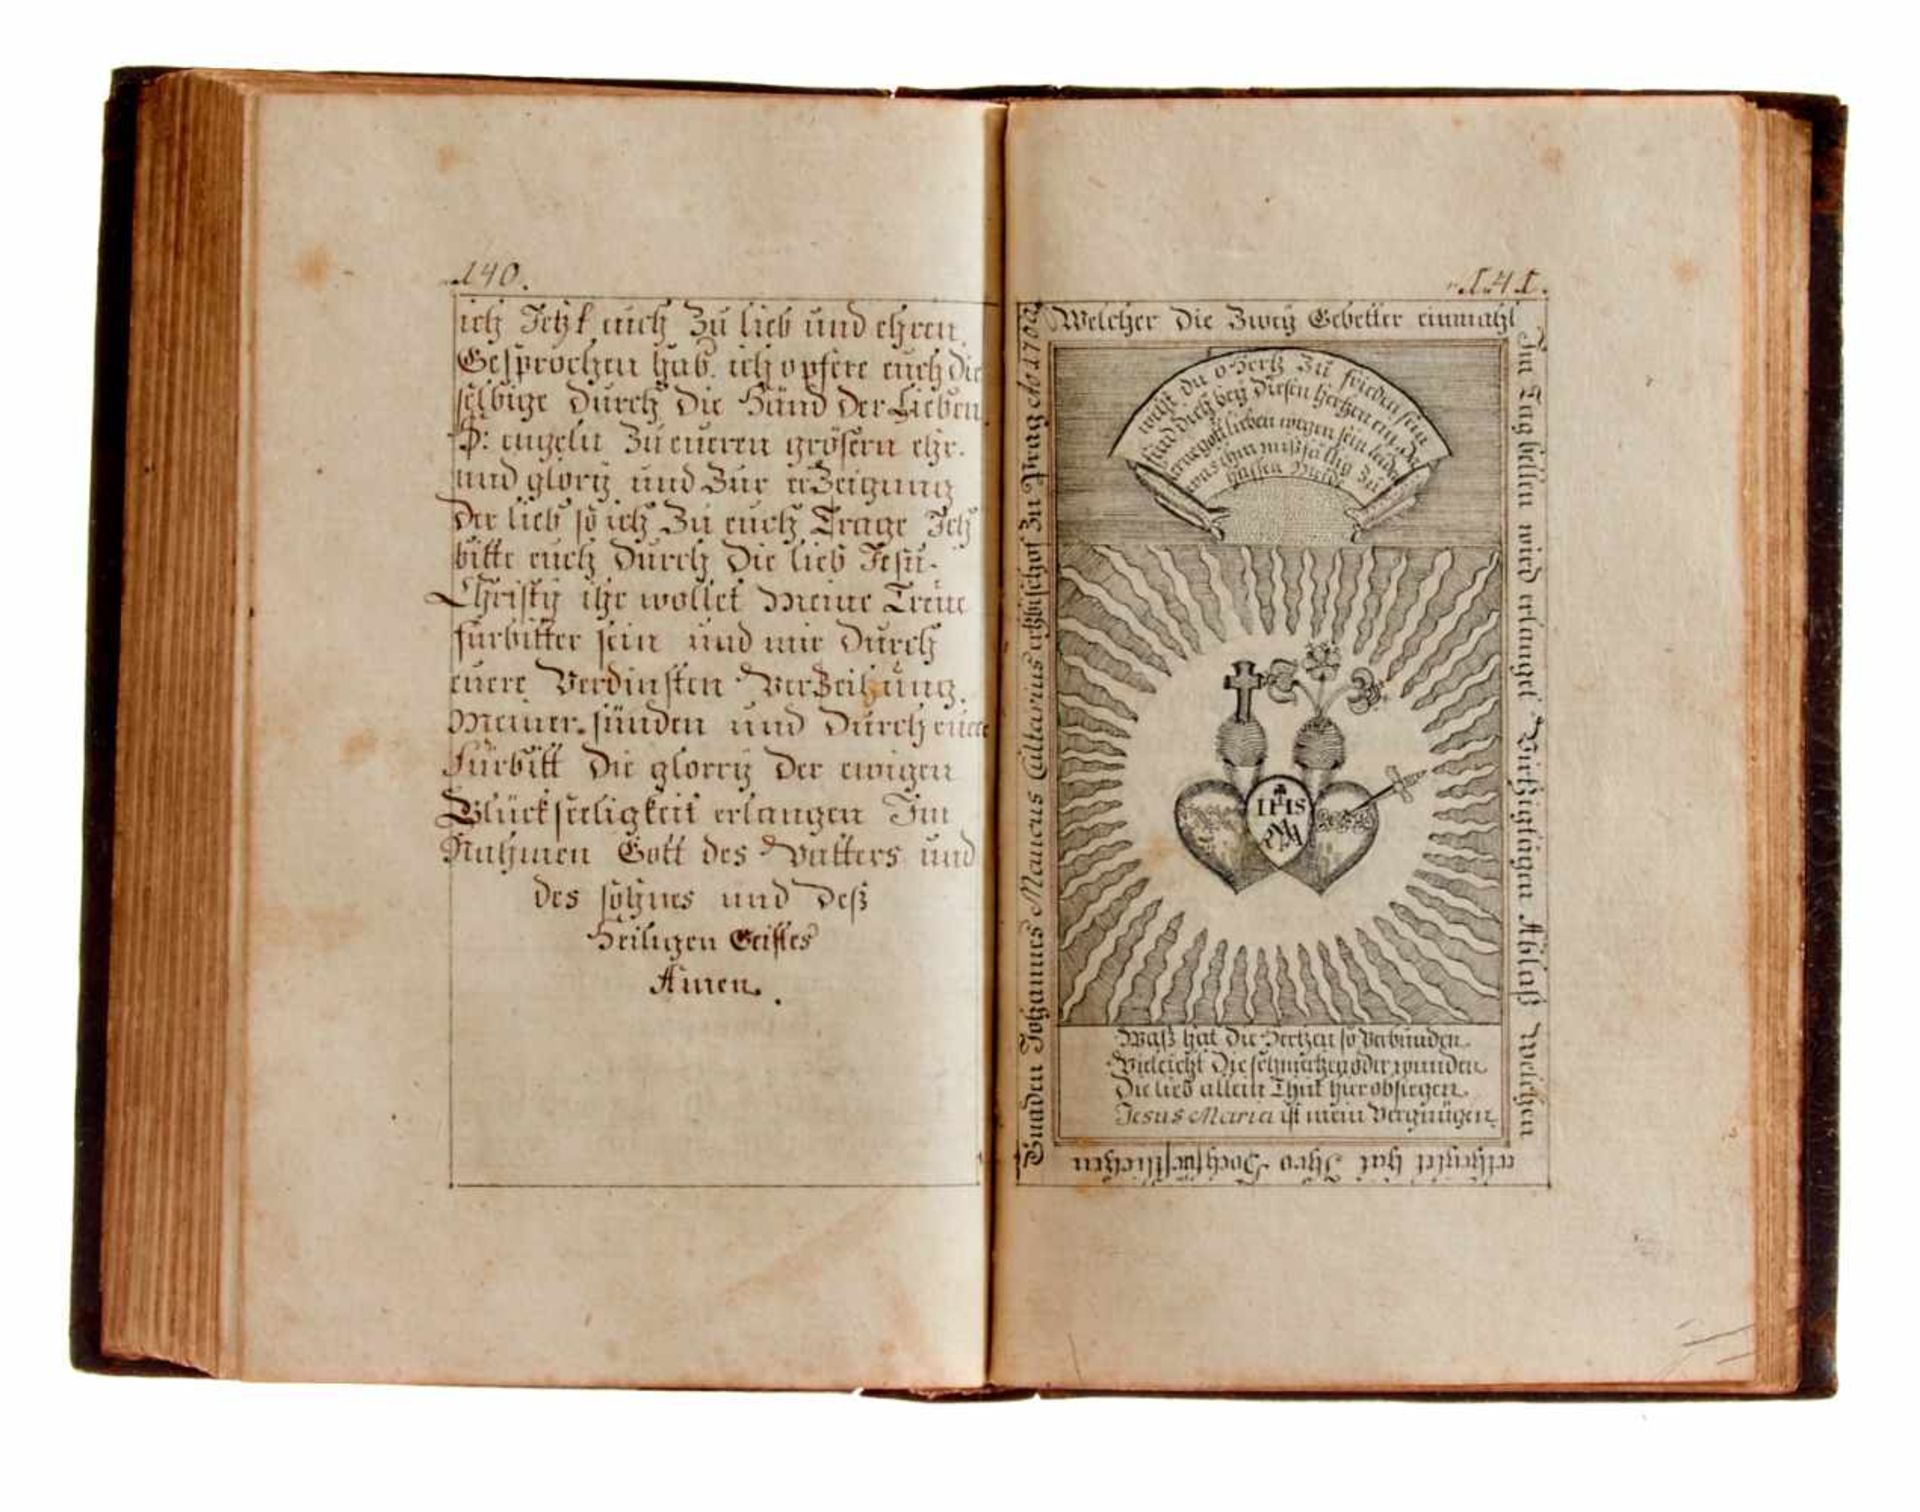 140.
ich Jetzt euch Zu lieb und ehren
Gesprochen hab. ich opfere euch die
selbige Durch die Händ der Lieben
S: engeln Zu eueren grösern ehr.
und glory und Zur erZeigung
der lieb so ich Zu euch Trage Ich
bitte euch Durch Die lieb Jesu
Christy ihr wollet Meine Treüe
fürbitter sein und mir Durch
euere Verdinsten VerZeihüng
Meiner sünden und Durch euere
Fürbitt Die glorry Der ewigen
Glückseeligkeit erlangen Im
Nahmen Gott des Vatters und
des sohnes und Deß
Heiligen Geistes
Amen.
141.
Welcher Die Zwey Gebetter einmahl
Im Tag betten wird erlanget Virtzigtägen Ablaß Welchen
ertheilet hat Ihro Hochfürstlichen
Gnaden Johannes Maucus ertzbischof Zu Prag
wilst du o Hertz Zu frieden sein
find Dich bey Diesen Hertzen ein
gott lieben wegen sein
was ihm mißfällig Zu
hassen
IHS
MRA
Waß hat Die Hertzen so Verbunden
Vieleicht Die schmertzen oder wunden
Die lieb allein Thut hier obsiegen
Jesus Maria ist mein Vergnügen